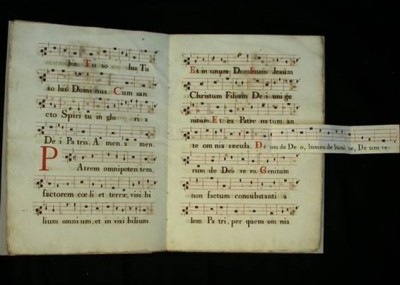 bis Tu solus Tu
solus Dominus Cum san
cto Spiritu in gloria
Dei Patris. Amen. amen.
Patrem omnipotentem,
factorem coeli et terræ, visibi
lium omnium, et in visibilium.
Et in unum Dominum Jesum
Christum Filium Dei unige
nitum. Et ex Patre natum an
te omnia secula. De
um de Deo, lumen de lumine, Deum ve
rum de Deo vero. Genitum
non factum consubstanti a
lem Patri, per quem omnia